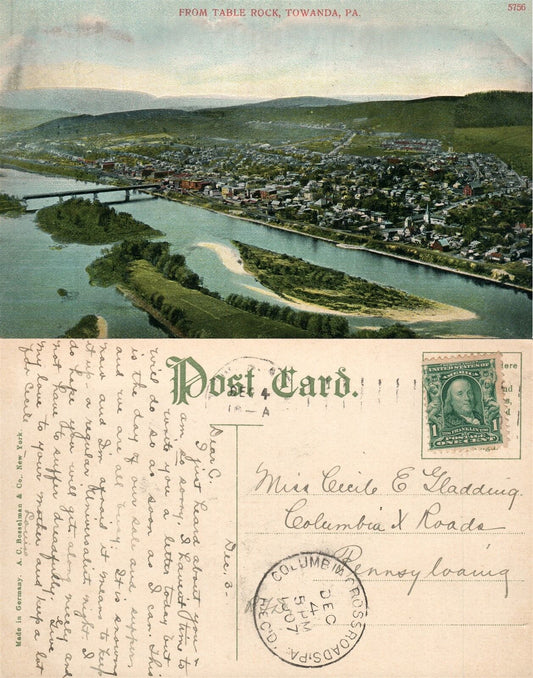 FROM TABLE ROCK, TOWANDA, PA.
5756
Post Card.
DEC 4
12-A
here
UNITED STATES OF AMERICA
FRANKLIN
1 POSTAGE 1
ONE CENT
Made in Germany. A. C. Bosselman & Co., New York.
Dec. 3-
Dear C.
I just heard about you &
am so sorry. I haven't time to
write you a letter today but
will do so as soon as I can. This
is the day of our sale and supper
and we are all busy. It is snowing
now and I'm afraid it means to keep
it up - a regular Universalist night. I
do hope you will get along nicely and
not have to suffer dreadfully. Give
my love to your mother and keep a lot
for
Miss Cecile E Gladding.
Columbia X Roads
Pennsylvania
COLUMBIA CROSS ROADS, PA.
DEC
4
5 PM
1907
REC'D.